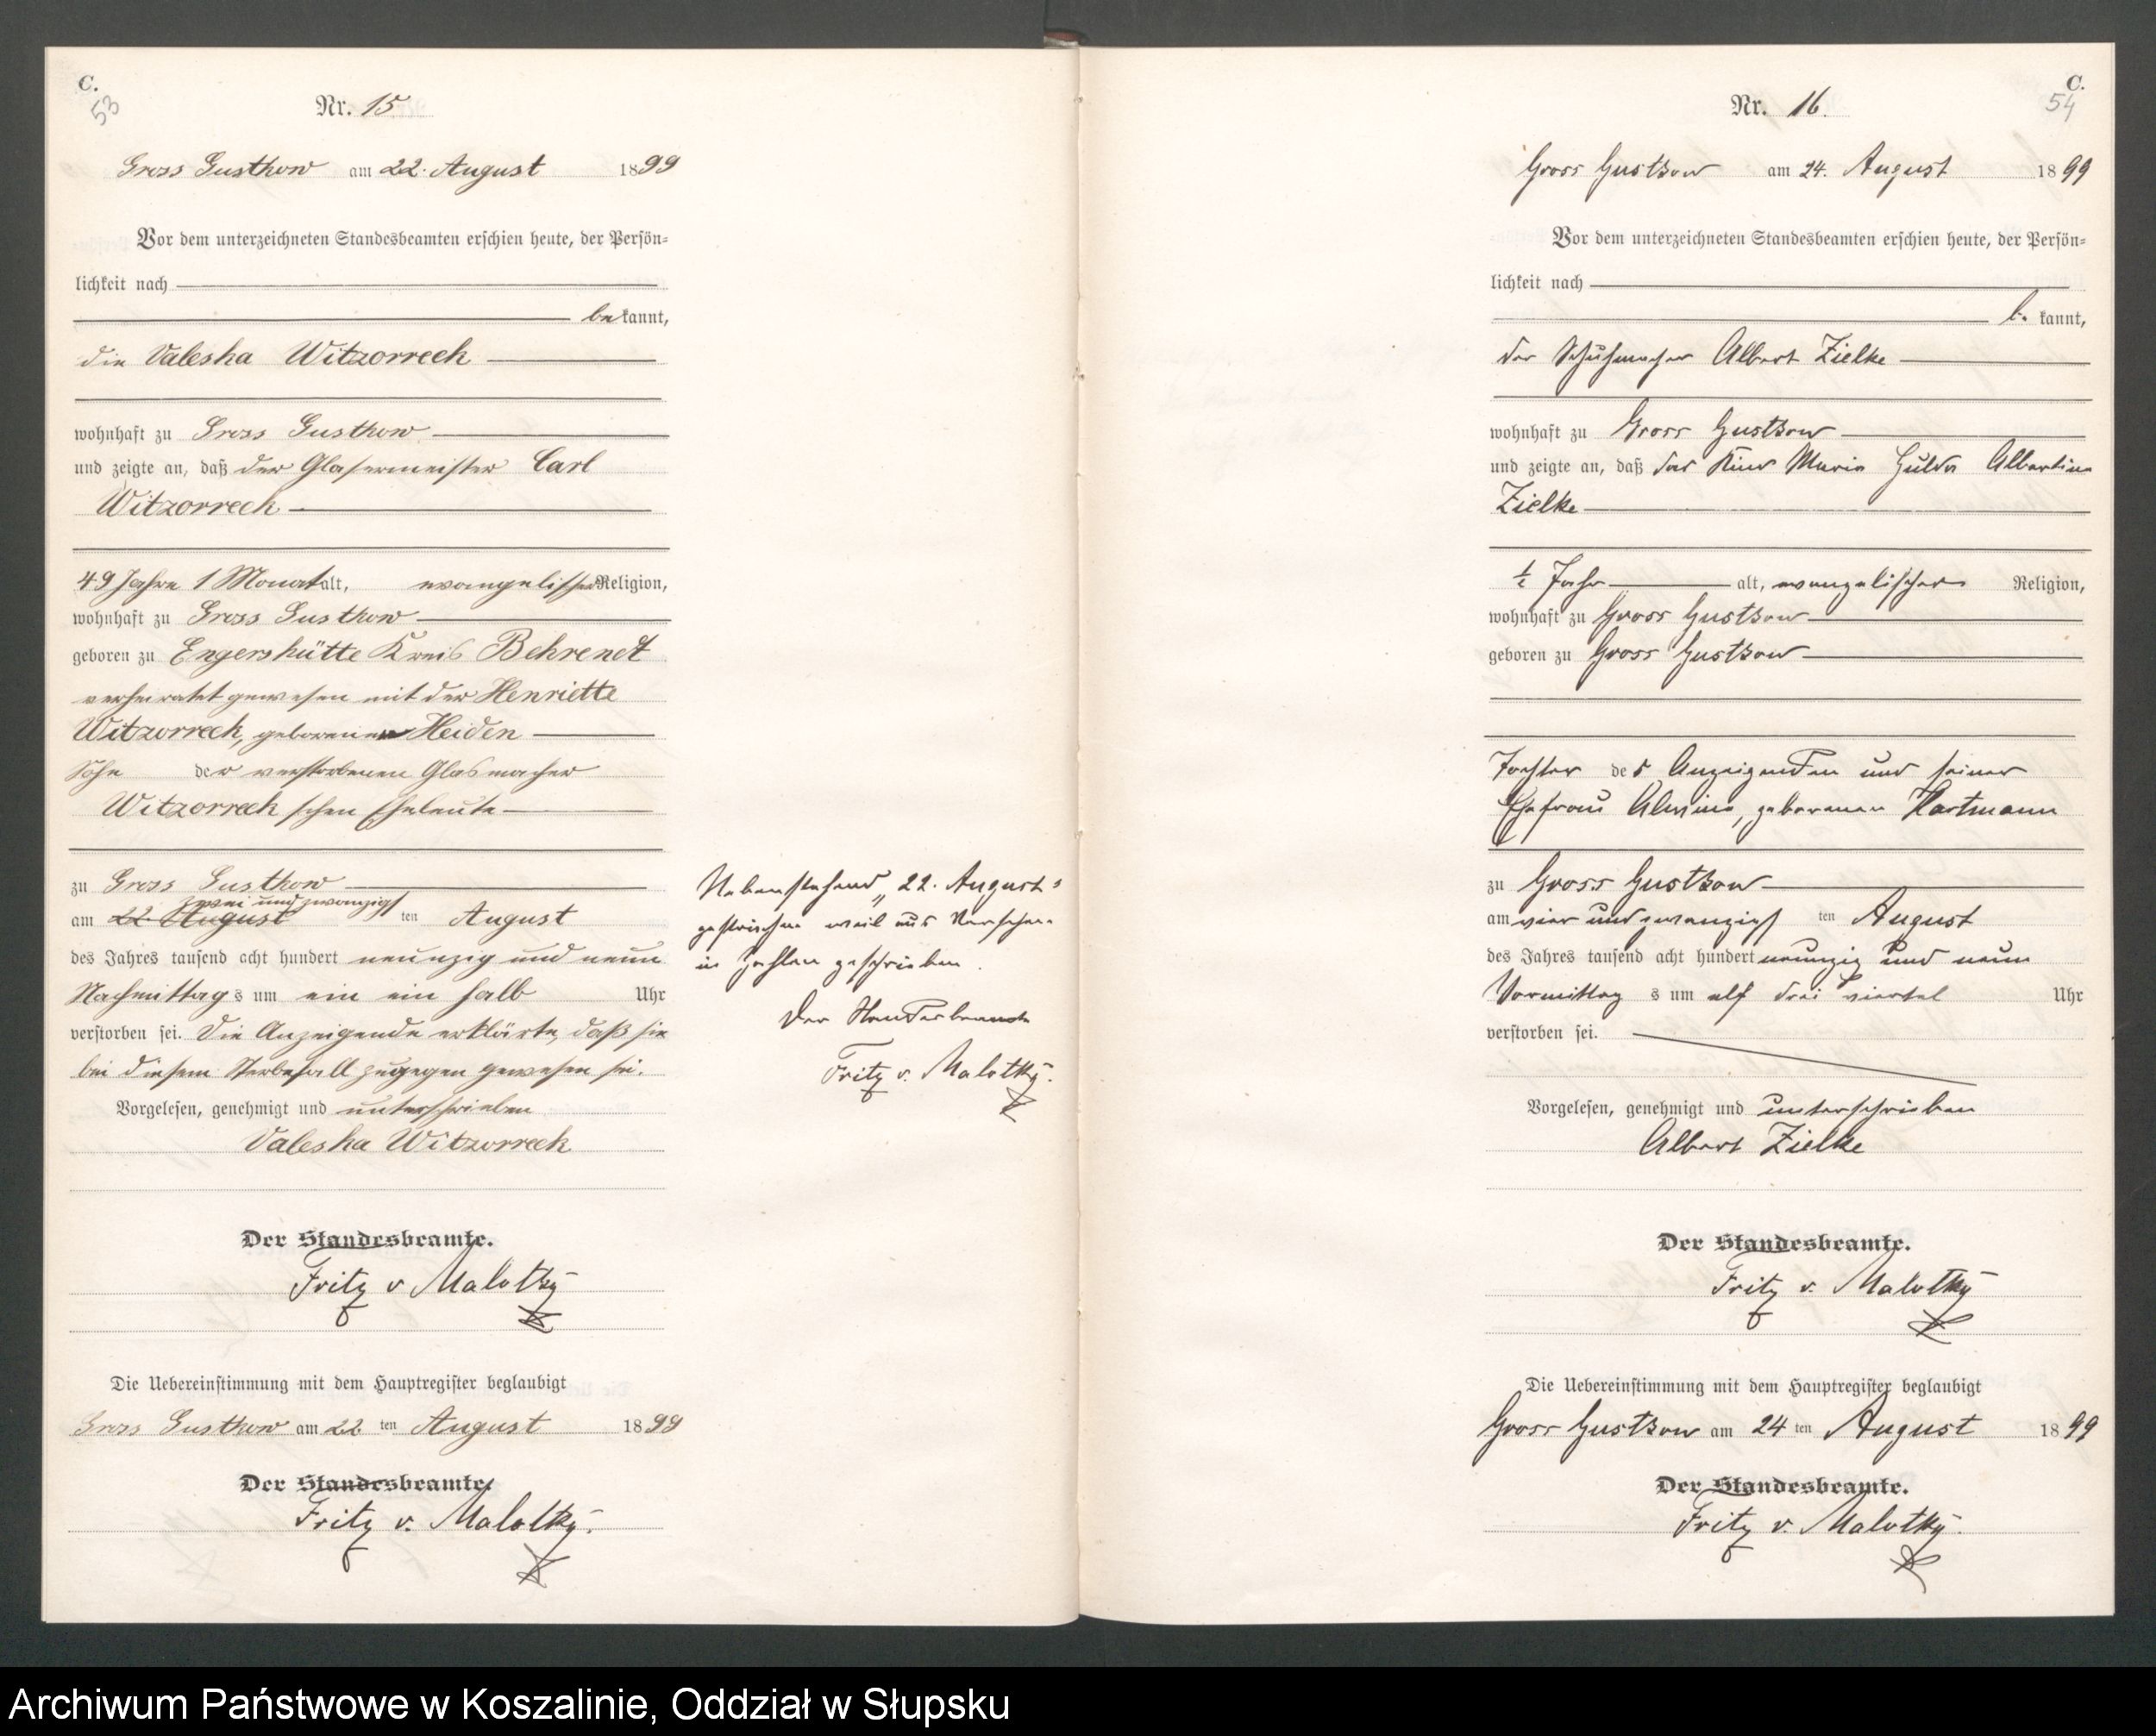 C.
53
Nr. 15
Gross Gustkow am 22. August 1899
Vor dem unterzeichneten Standesbeamten erschien heute, der Persön-
lichkeit nach
bekannt,
die Valeska Witzorreck
wohnhaft zu Gross Gustkow
und zeigte an, daß der Glasermeister Carl
Witzorreck
49 Jahre 1 Monat alt, evangelischer Religion,
wohnhaft zu Gross Gustkow
geboren zu Engershütte Kreis Behrendt
verheiratet gewesen mit der Henriette
Witzorreck, geborenen Heiden
Sohn der verstorbenen Glasmacher
Witzorreck'schen Eheleute
zu Gross Gustkow
zwei und zwanzigs
am 22 August ten August
des Jahres tausend acht hundert neunzig und neun
Nachmittags um ein ein halb Uhr
verstorben sei. Die Anzeigende erklärte, daß sie
bei diesem Sterbefall zugegen gewesen sei.
Vorgelesen, genehmigt und unterschrieben
Valeska Witzorreck
Der Standesbeamte.
Fritz v Malotky
Die Uebereinstimmung mit dem Hauptregister beglaubigt
Gross Gustkow am 22 ten August 1899
Der Standesbeamte.
Fritz v. Malotky.
Nebenstehend „22. August"
gestrichen weil aus Versehen
in Zahlen geschrieben.
Der Standesbeamte
Fritz v. Malotky.
C.
54
Nr. 16.
Gross Gustkow am 24. August 1899
Vor dem unterzeichneten Standesbeamten erschien heute, der Persön-
lichkeit nach
b. kannt,
der Schuhmacher Albert Zielke
wohnhaft zu Gross Gustkow
und zeigte an, daß das Kind Maria Hulda Albertine
Zielke
½ Jahr alt, evangelischer Religion,
wohnhaft zu Gross Gustkow
geboren zu Gross Gustkow
Tochter des Anzeigenden und seiner
Ehefrau Alwine, geborenen Hartmann
zu Gross Gustkow
am vier und zwanzigs ten August
des Jahres tausend acht hundert neunzig und neun
Vormittag s um elf drei viertel Uhr
verstorben sei.
Vorgelesen, genehmigt und unterschrieben
Albert Zielke
Der Standesbeamte.
Fritz v. Malotky
Die Uebereinstimmung mit dem Hauptregister beglaubigt
Gross Gustkow am 24 ten August 1899
Der Standesbeamte.
Fritz v. Malotky.
Archiwum Państwowe w Koszalinie, Oddział w Słupsku